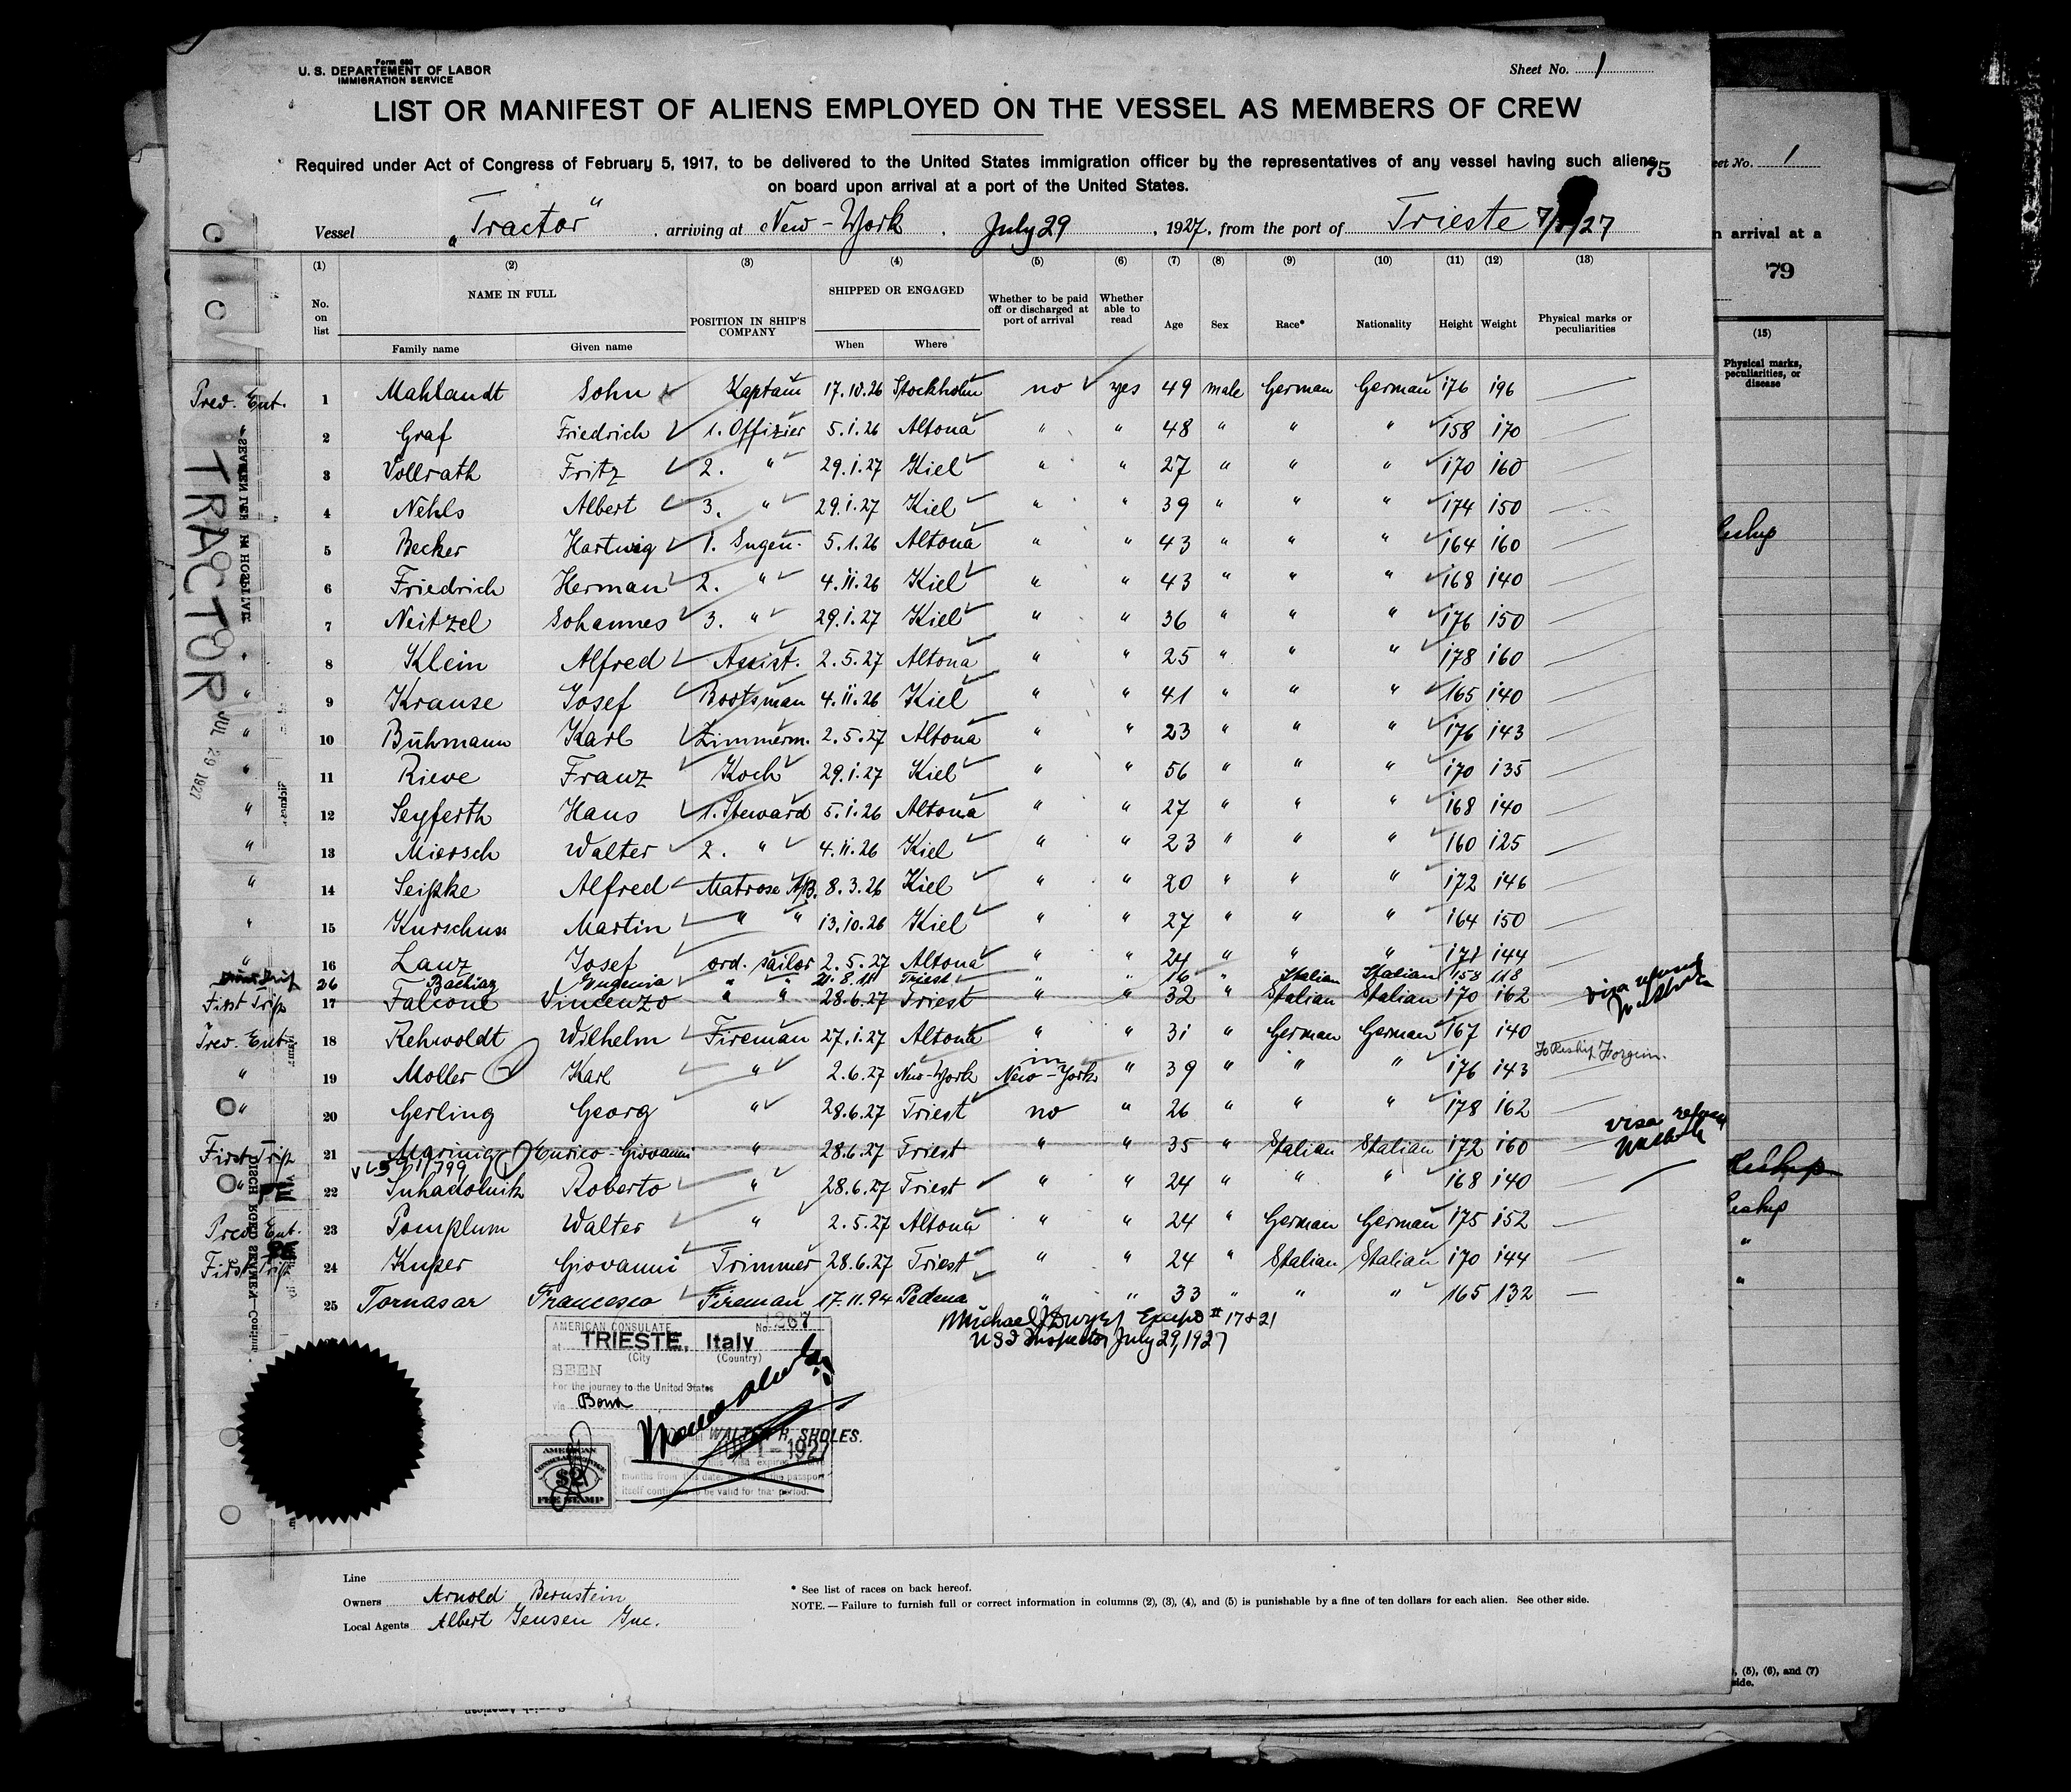 Form 680
U. S. DEPARTMENT OF LABOR
IMMIGRATION SERVICE
Sheet No. 1
LIST OR MANIFEST OF ALIENS EMPLOYED ON THE VESSEL AS MEMBERS OF CREW
Required under Act of Congress of February 5, 1917, to be delivered to the United States immigration officer by the representatives of any vessel having such aliens
on board upon arrival at a port of the United States.
75
Vessel „Tractor“ , arriving at New-York , July 29 , 1927, from the port of Trieste
(1) (2) (3) (4) (5) (6) (7) (8) (9) (10) (11) (12) (13)
No. on list NAME IN FULL Family name Given name POSITION IN SHIP'S COMPANY SHIPPED OR ENGAGED When Where Whether to be paid off or discharged at port of arrival Whether able to read Age Sex Race* Nationality Height Weight Physical marks or peculiarities
Prev. Ent. 1 Mahlandt John Kaptain 17.10.26 Stockholm no yes 49 male German German 176 196
2 Graf Friedrich 1. Offizier 5.1.26 Altona " " 48 " " " 158 170
3 Vollrath Fritz 2. " 29.1.27 Kiel " " 27 " " " 170 160
4 Nehls Albert 3. " 29.1.27 Kiel " " 39 " " " 174 150
5 Becker Hartwig 1. Ingen. 5.1.26 Altona " " 43 " " " 164 160
6 Friedrich Herman 2. " 4.11.26 Kiel " " 43 " " " 168 140
7 Neitzel Johannes 3. " 29.1.27 Kiel " " 36 " " " 176 150
8 Klein Alfred Assist. 2.5.27 Altona " " 25 " " " 178 160
" 9 Krause Josef Bootsman 4.11.26 Kiel " " 41 " " " 165 140
" 10 Buhmann Karl Zimmerm. 2.5.27 Altona " " 23 " " " 176 143
" 11 Rieve Franz Koch 29.1.27 Kiel " " 56 " " " 170 135
" 12 Seyferth Hans 1. Steward 5.1.26 Altona " " 27 " " " 168 140
" 13 Miersch Walter 2. " 4.11.26 Kiel " " 23 " " " 160 125
" 14 Seipke Alfred Matrose A/B. 8.3.26 Kiel " " 20 " " " 172 146
" 15 Kurschuss Martin " " 13.10.26 Kiel " " 27 " " " 164 150
" 16 Lanz Josef ord. sailor 2.5.27 Altona " " 24 " " " 171 144
26 Eugenia " " Triest " " 16 " Italian Italian 158 118
First Trip 17 Falcone Vincenzo " " 28.6.27 Triest " " 32 " Italian Italian 170 162
Prev. Ent. 18 Rehwoldt Wilhelm Fireman 27.1.27 Altona " " 31 " German German 167 140
To Reship Foreign.
" 19 Moller Karl " 2.6.27 New-York in New-York " 39 " " " 176 143
" 20 Gerling Georg " 28.6.27 Triest no " 26 " " " 178 162
First Trip 21 Enrico-Giovanni " 28.6.27 Triest " " 35 " Italian Italian 172 160
" 22 Suhadolnik Roberto " 28.6.27 Triest " " 24 " " " 168 140
Prev. Ent. 23 Pomplum Walter " 2.5.27 Altona " " 24 " German German 175 152
First Trip 24 Kuper Giovanni Trimmer 28.6.27 Triest " " 24 " Italian Italian 170 144
25 Tornasar Francesco Fireman 17.11.94 Pedena " " 33 " " " 165 132
Michael J Dwyer Except # 17 & 21
U S I Inspector July 29, 1927
AMERICAN CONSULATE No. 1267
at TRIESTE, Italy
(City (Country)
SEEN
For the journey to the United States
via
WALTER R. SHOLES.
AMERICAN
CONSULAR SERVICE
$2
FEE STAMP
months from this date, the passport
itself continues to be valid for that period.
TRACTOR
JUL 29 1927
Line
Owners Arnold Bernstein
Local Agents Albert Jensen Inc.
* See list of races on back hereof.
NOTE.—Failure to furnish full or correct information in columns (2), (3), (4), and (5) is punishable by a fine of ten dollars for each alien. See other side.
Sheet No. 1
n arrival at a
79
(15)
Physical marks, peculiarities, or disease
, (5), (6), and (7)
side.